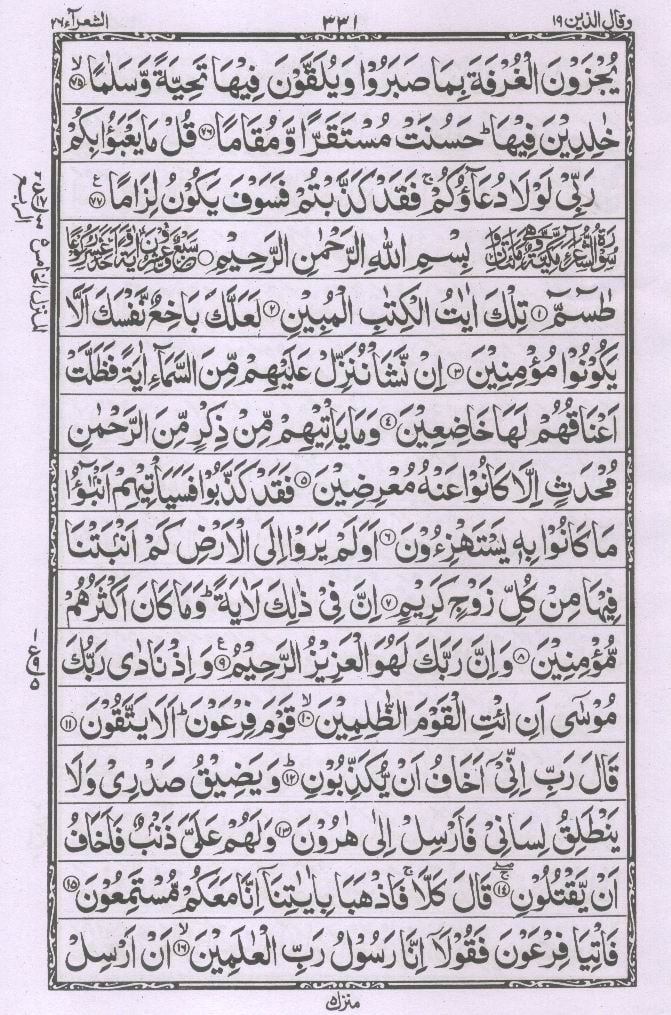 وقال الذین ۱۹
۳۳۱
الشعرآء ۲۶
یُجْزَوْنَ الْغُرْفَةَ بِمَا صَبَرُوْا وَیُلَقَّوْنَ فِیْهَا تَحِیَّةً وَّسَلٰمًا ﴿۷۵﴾
خٰلِدِیْنَ فِیْهَا ؕ حَسُنَتْ مُسْتَقَرًّا وَّ مُقَامًا ﴿۷۶﴾ قُلْ مَا یَعْبَؤُا بِكُمْ
رَبِّیْ لَوْ لَا دُعَآؤُكُمْ ۚ فَقَدْ كَذَّبْتُمْ فَسَوْفَ یَكُوْنُ لِزَامًا ﴿۷۷﴾
بِسْمِ اللّٰهِ الرَّحْمٰنِ الرَّحِیْمِ
طٰسٓمّٓ ﴿۱﴾ تِلْكَ اٰیٰتُ الْكِتٰبِ الْمُبِیْنِ ﴿۲﴾ لَعَلَّكَ بَاخِعٌ نَّفْسَكَ اَلَّا
یَكُوْنُوْا مُؤْمِنِیْنَ ﴿۳﴾ اِنْ نَّشَاْ نُنَزِّلْ عَلَیْهِمْ مِّنَ السَّمَآءِ اٰیَةً فَظَلَّتْ
اَعْنَاقُهُمْ لَهَا خَاضِعِیْنَ ﴿۴﴾ وَمَا یَاْتِیْهِمْ مِّنْ ذِكْرٍ مِّنَ الرَّحْمٰنِ
مُحْدَثٍ اِلَّا كَانُوْا عَنْهُ مُعْرِضِیْنَ ﴿۵﴾ فَقَدْ كَذَّبُوْا فَسَیَاْتِیْهِمْ اَنْۢبٰٓؤُا
مَا كَانُوْا بِهٖ یَسْتَهْزِءُوْنَ ﴿۶﴾ اَوَلَمْ یَرَوْا اِلَی الْاَرْضِ كَمْ اَنْۢبَتْنَا
فِیْهَا مِنْ كُلِّ زَوْجٍ كَرِیْمٍ ﴿۷﴾ اِنَّ فِیْ ذٰلِكَ لَاٰیَةً ؕ وَمَا كَانَ اَكْثَرُهُمْ
مُّؤْمِنِیْنَ ﴿۸﴾ وَاِنَّ رَبَّكَ لَهُوَ الْعَزِیْزُ الرَّحِیْمُ ﴿۹﴾ وَ اِذْ نَادٰی رَبُّكَ
مُوْسٰۤی اَنِ ائْتِ الْقَوْمَ الظّٰلِمِیْنَ ﴿۱۰﴾ قَوْمَ فِرْعَوْنَ ؕ اَلَا یَتَّقُوْنَ ﴿۱۱﴾
قَالَ رَبِّ اِنِّیْۤ اَخَافُ اَنْ یُّكَذِّبُوْنِ ﴿۱۲﴾ وَ یَضِیْقُ صَدْرِیْ وَلَا
یَنْطَلِقُ لِسَانِیْ فَاَرْسِلْ اِلٰی هٰرُوْنَ ﴿۱۳﴾ وَلَهُمْ عَلَیَّ ذَنْۢبٌ فَاَخَافُ
اَنْ یَّقْتُلُوْنِ ﴿۱۴﴾ قَالَ كَلَّا ۚ فَاذْهَبَا بِاٰیٰتِنَاۤ اِنَّا مَعَكُمْ مُّسْتَمِعُوْنَ ﴿۱۵﴾
فَاْتِیَا فِرْعَوْنَ فَقُوْلَاۤ اِنَّا رَسُوْلُ رَبِّ الْعٰلَمِیْنَ ﴿۱۶﴾ اَنْ اَرْسِلْ
منزل ۵